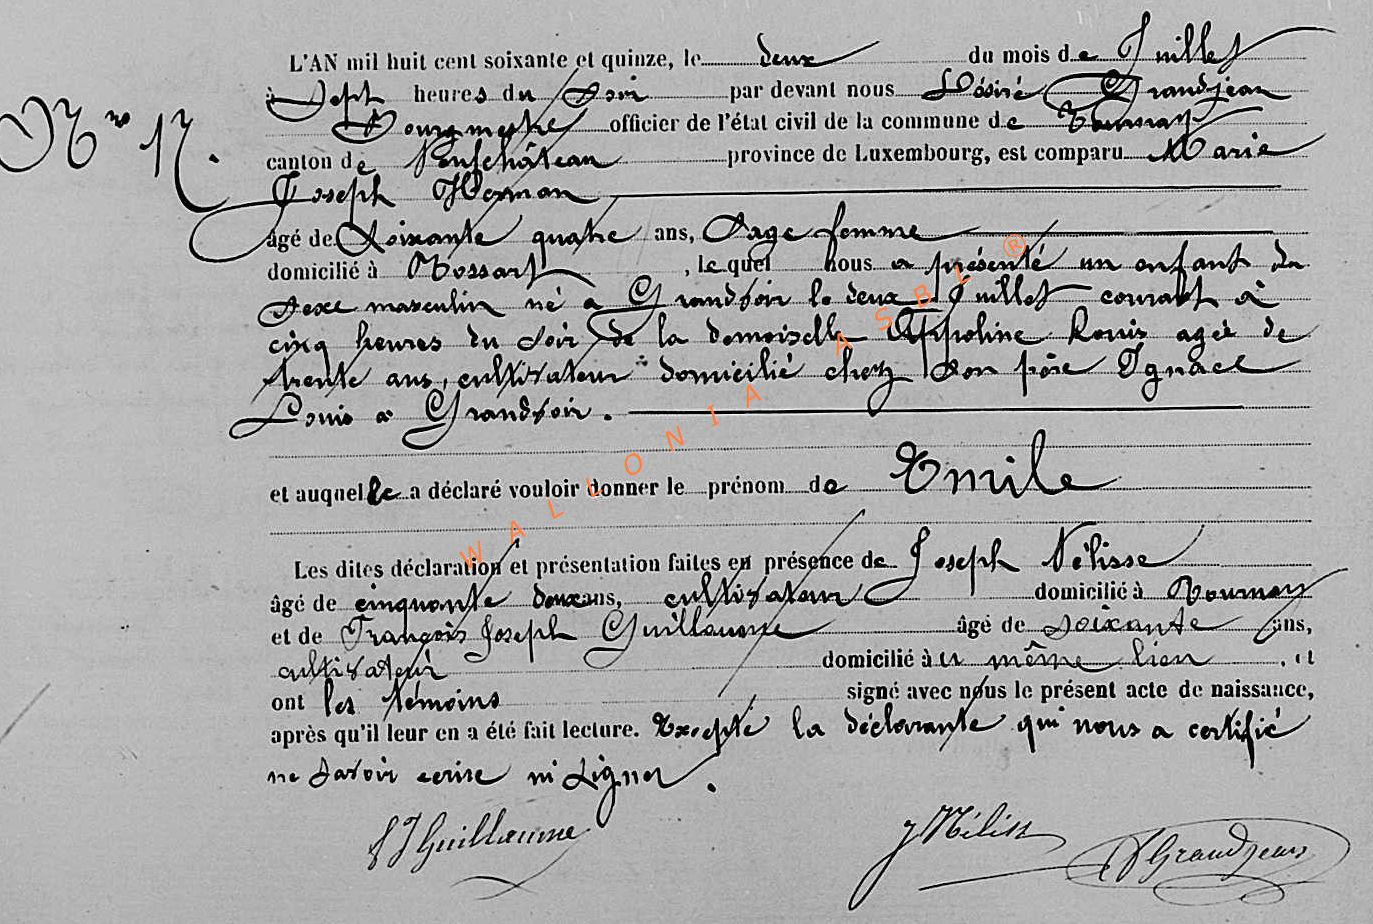 L'AN mil huit cent soixante et quinze, le deux du mois de Juillet
à Sept heures du Soir par devant nous Désiré Grandjean
Bourgmestre officier de l'état civil de la commune de Tournay
Nro 17.
canton de Neufchâteau province de Luxembourg, est comparu Marie
Joseph Herman
âgé de Soixante quatre ans, Sage femme
domicilié à Rossart, lequel nous a présenté un enfant du
sexe masculin né à Grandvoir le deux Juillet courant à
cinq heures du soir de la demoiselle Appoline Louis agée de
trente ans, cultivateur domicilié chez son père Ignace
Louis a Grandvoir.
et auquel le a déclaré vouloir donner le prénom de Emile
Les dites déclaration et présentation faites en présence de Joseph Nélisse
âgé de cinquante deux ans, cultivateur domicilié à Tournay
et de François Joseph Guillaume âgé de soixante ans,
cultivateur domicilié à u même lieu, et
ont les témoins signé avec nous le présent acte de naissance,
après qu'il leur en a été fait lecture. Excepté la déclarante qui nous a certifié
ne savoir ecrire ni signer.
f J Guillaume J Nélisse D Grandjean
WALLONIA ASBL ®